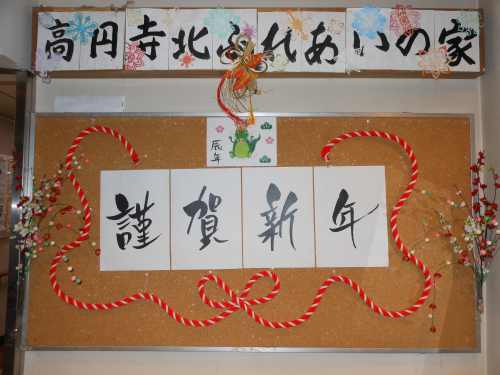 高円寺北ふれあいの家
辰年
謹賀新年